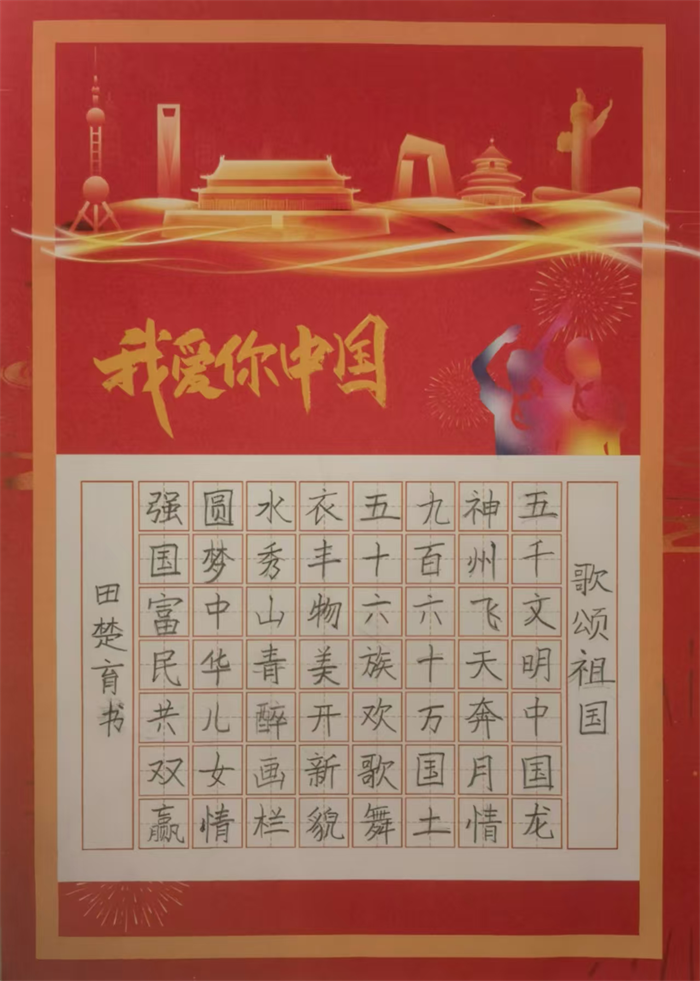 我爱你中国
歌颂祖国
五千文明中国龙
神州飞天奔月情
九百六十万国土
五十六族欢歌舞
衣丰物美开新貌
水秀山青醉画栏
圆梦中华儿女情
强国富民共双赢
田楚育书